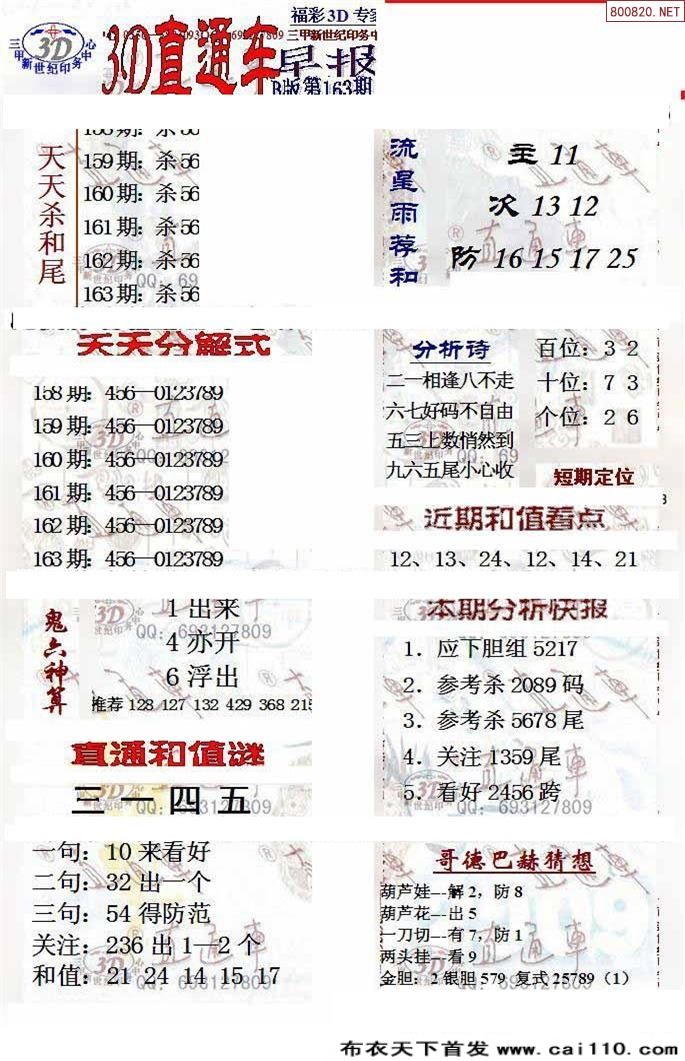 800820.NET
福彩3D 专家
三甲新世纪印务中心
3D
3D直通车
早报
B版第163期
天天杀和尾
158期: 杀56
159期: 杀56
160期: 杀56
161期: 杀56
162期: 杀56
163期: 杀56
流星雨荐和
主 11
次 13 12
防 16 15 17 25
天天分解式
158期: 456—0123789
159期: 456—0123789
160期: 456—0123789
161期: 456—0123789
162期: 456—0123789
163期: 456—0123789
分析诗
二一相逢八不走
六七好码不自由
五三上数悄然到
九六五尾小心收
百位: 3 2
十位: 7 3
个位: 2 6
短期定位
近期和值看点
12、13、24、12、14、21
鬼六神算
1 出来
4 亦开
6 浮出
推荐 128 127 132 429 368 215
本期分析快报
1. 应下胆组 5217
2. 参考杀 2089 码
3. 参考杀 5678 尾
4. 关注 1359 尾
5. 看好 2456 跨
直通和值谜
三 一 四 五
一句: 10 来看好
二句: 32 出一个
三句: 54 得防范
关注: 236 出 1—2 个
和值: 21 24 14 15 17
哥德巴赫猜想
葫芦娃---解 2, 防 8
葫芦花---出 5
一刀切---有 7, 防 1
两头挂---看 9
金胆: 2 银胆 579 复式 25789 (1)
QQ: 693127809
布衣天下首发 www.cai110.com